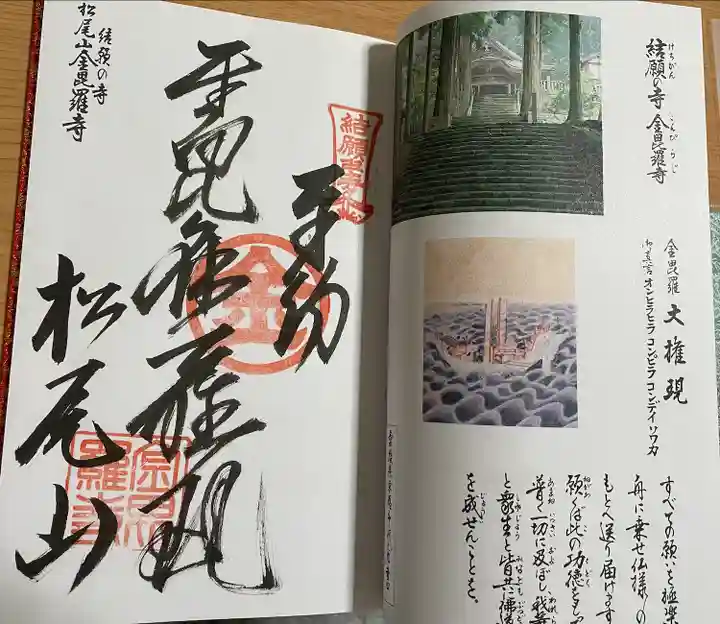 結願の寺 金毘羅寺
けちがん こんぴらじ
金毘羅 大権現
御真言 オンヒラヒラ コンピラ コンテイ ソワカ
すべての願いを極楽
舟に乗せ仏様の
もとへ送り届けます
願くば此の功徳をもつ
普く一切に及ぼし、我等
と衆生と皆共に佛道
を成せんことを。
奉納
金
松尾山
結願の寺
松尾山金毘羅寺